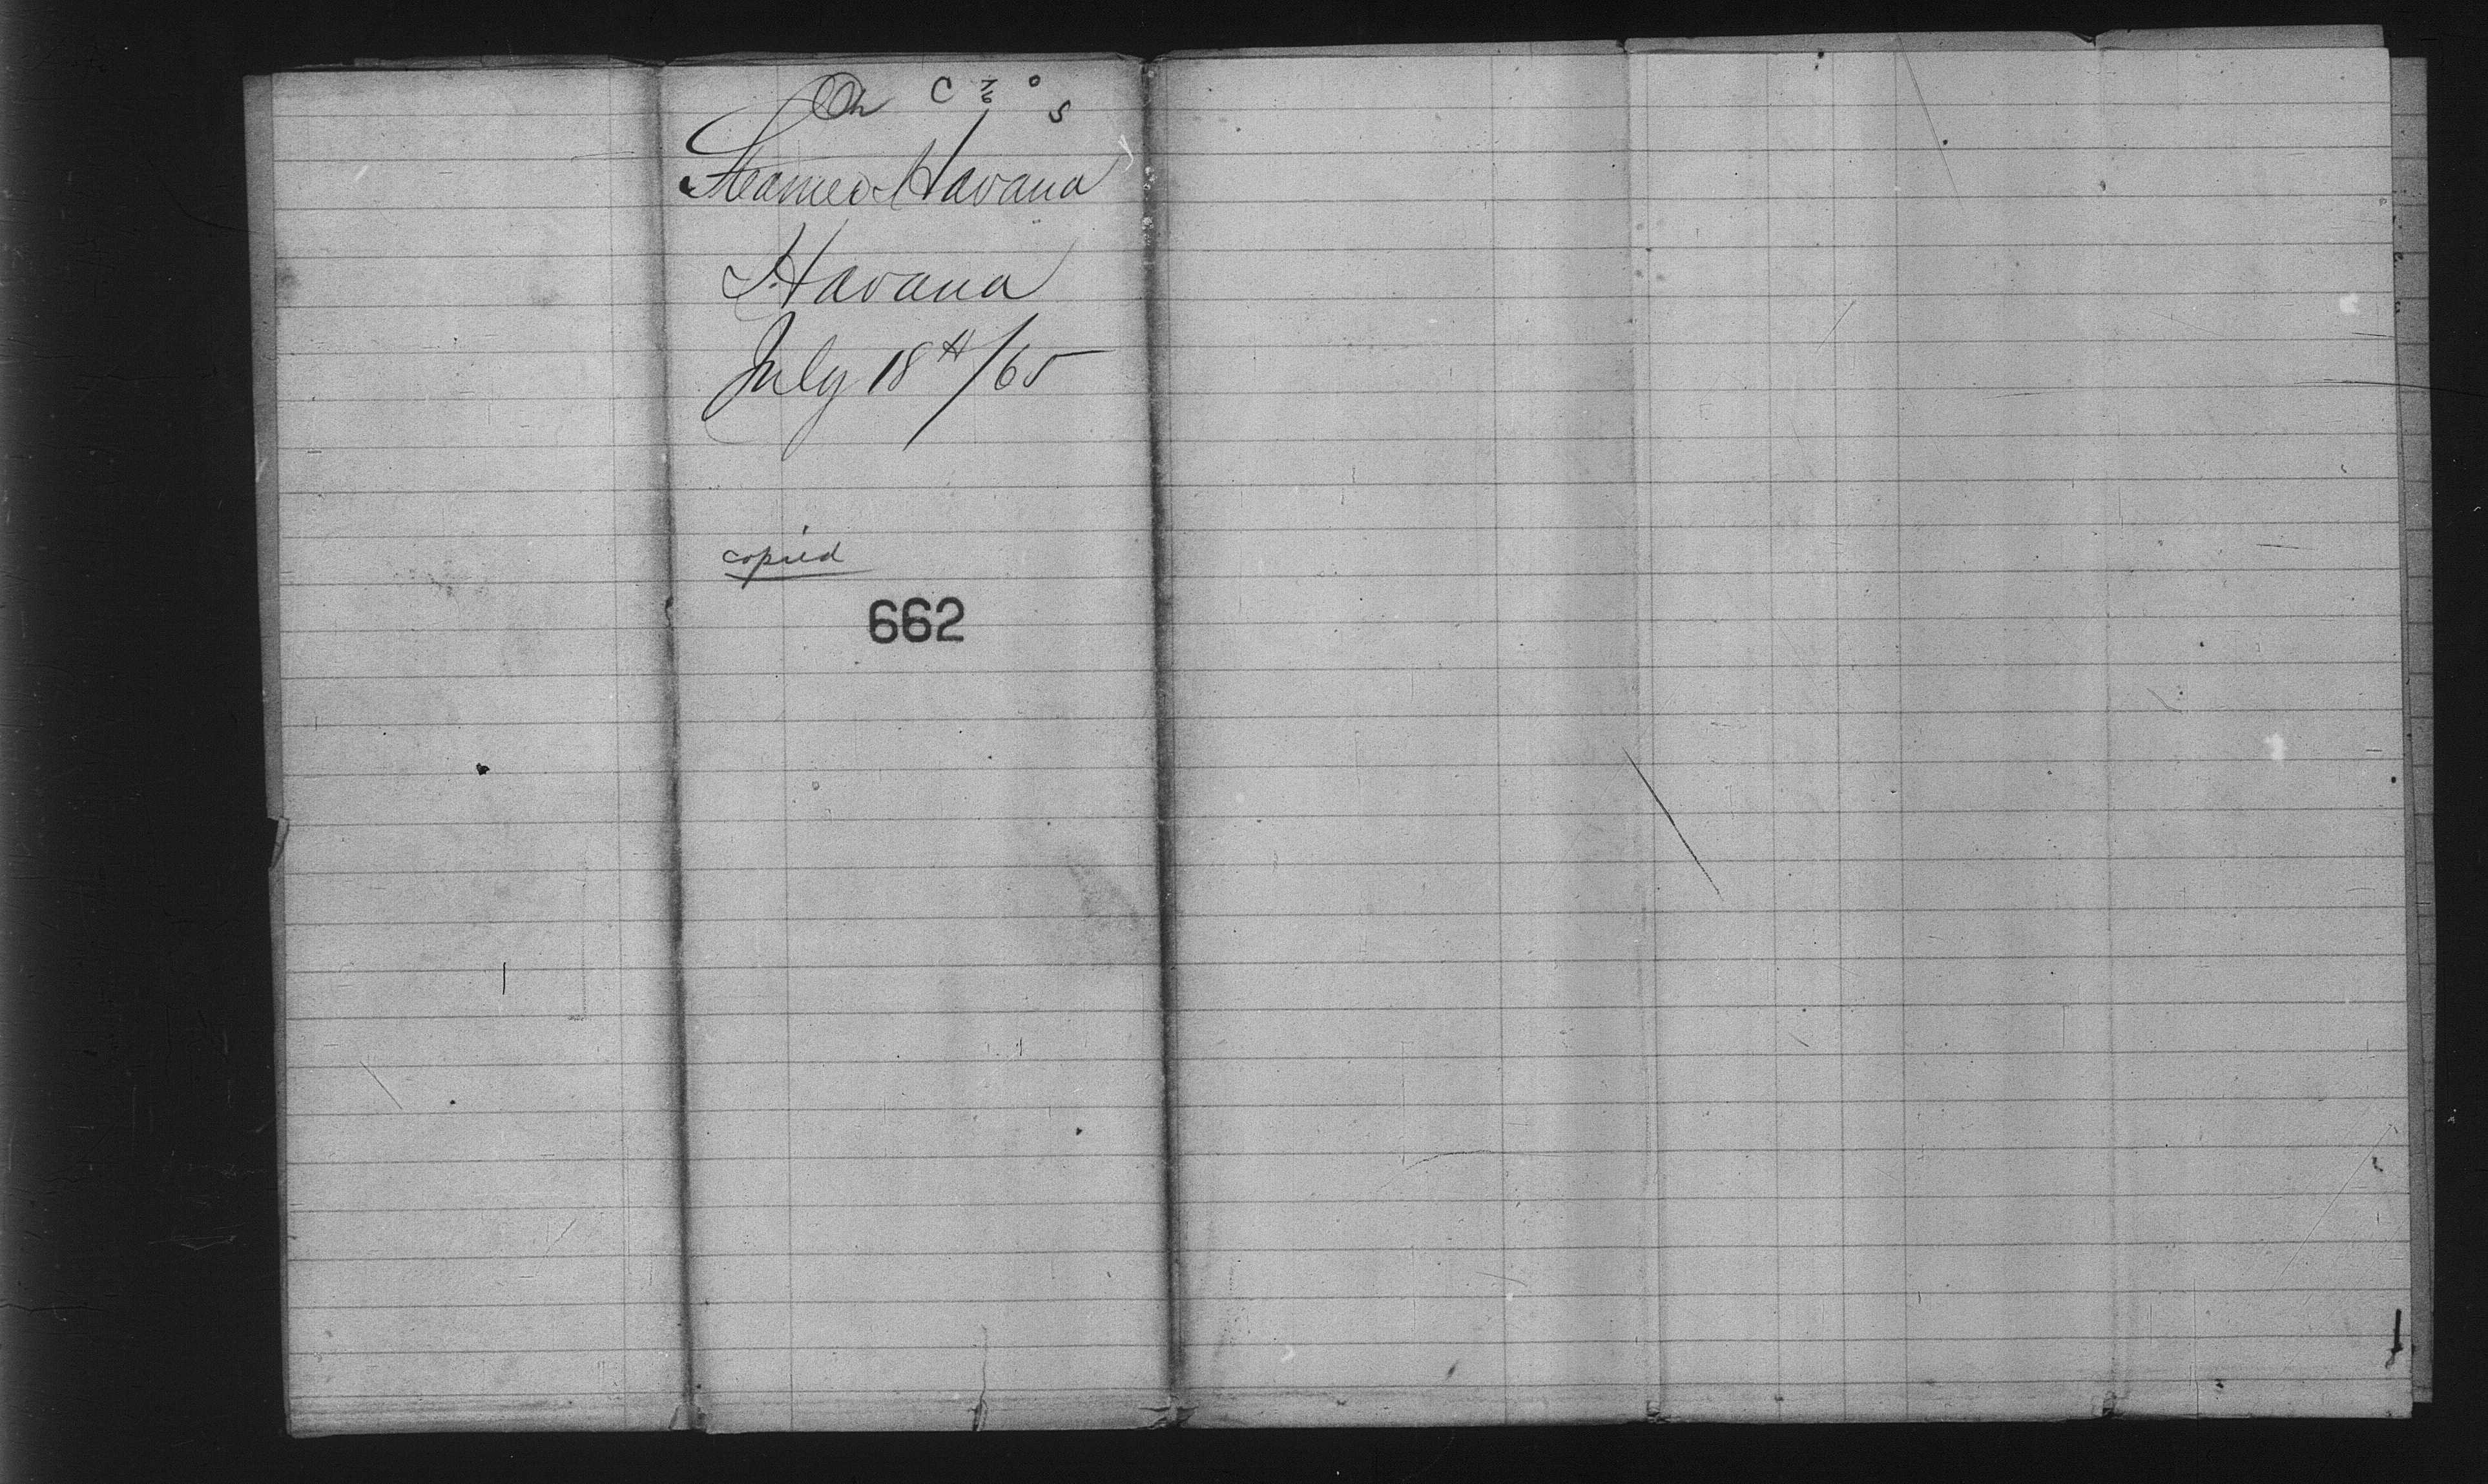 Steamer Havana
Havana
July 18th/65
copied
662